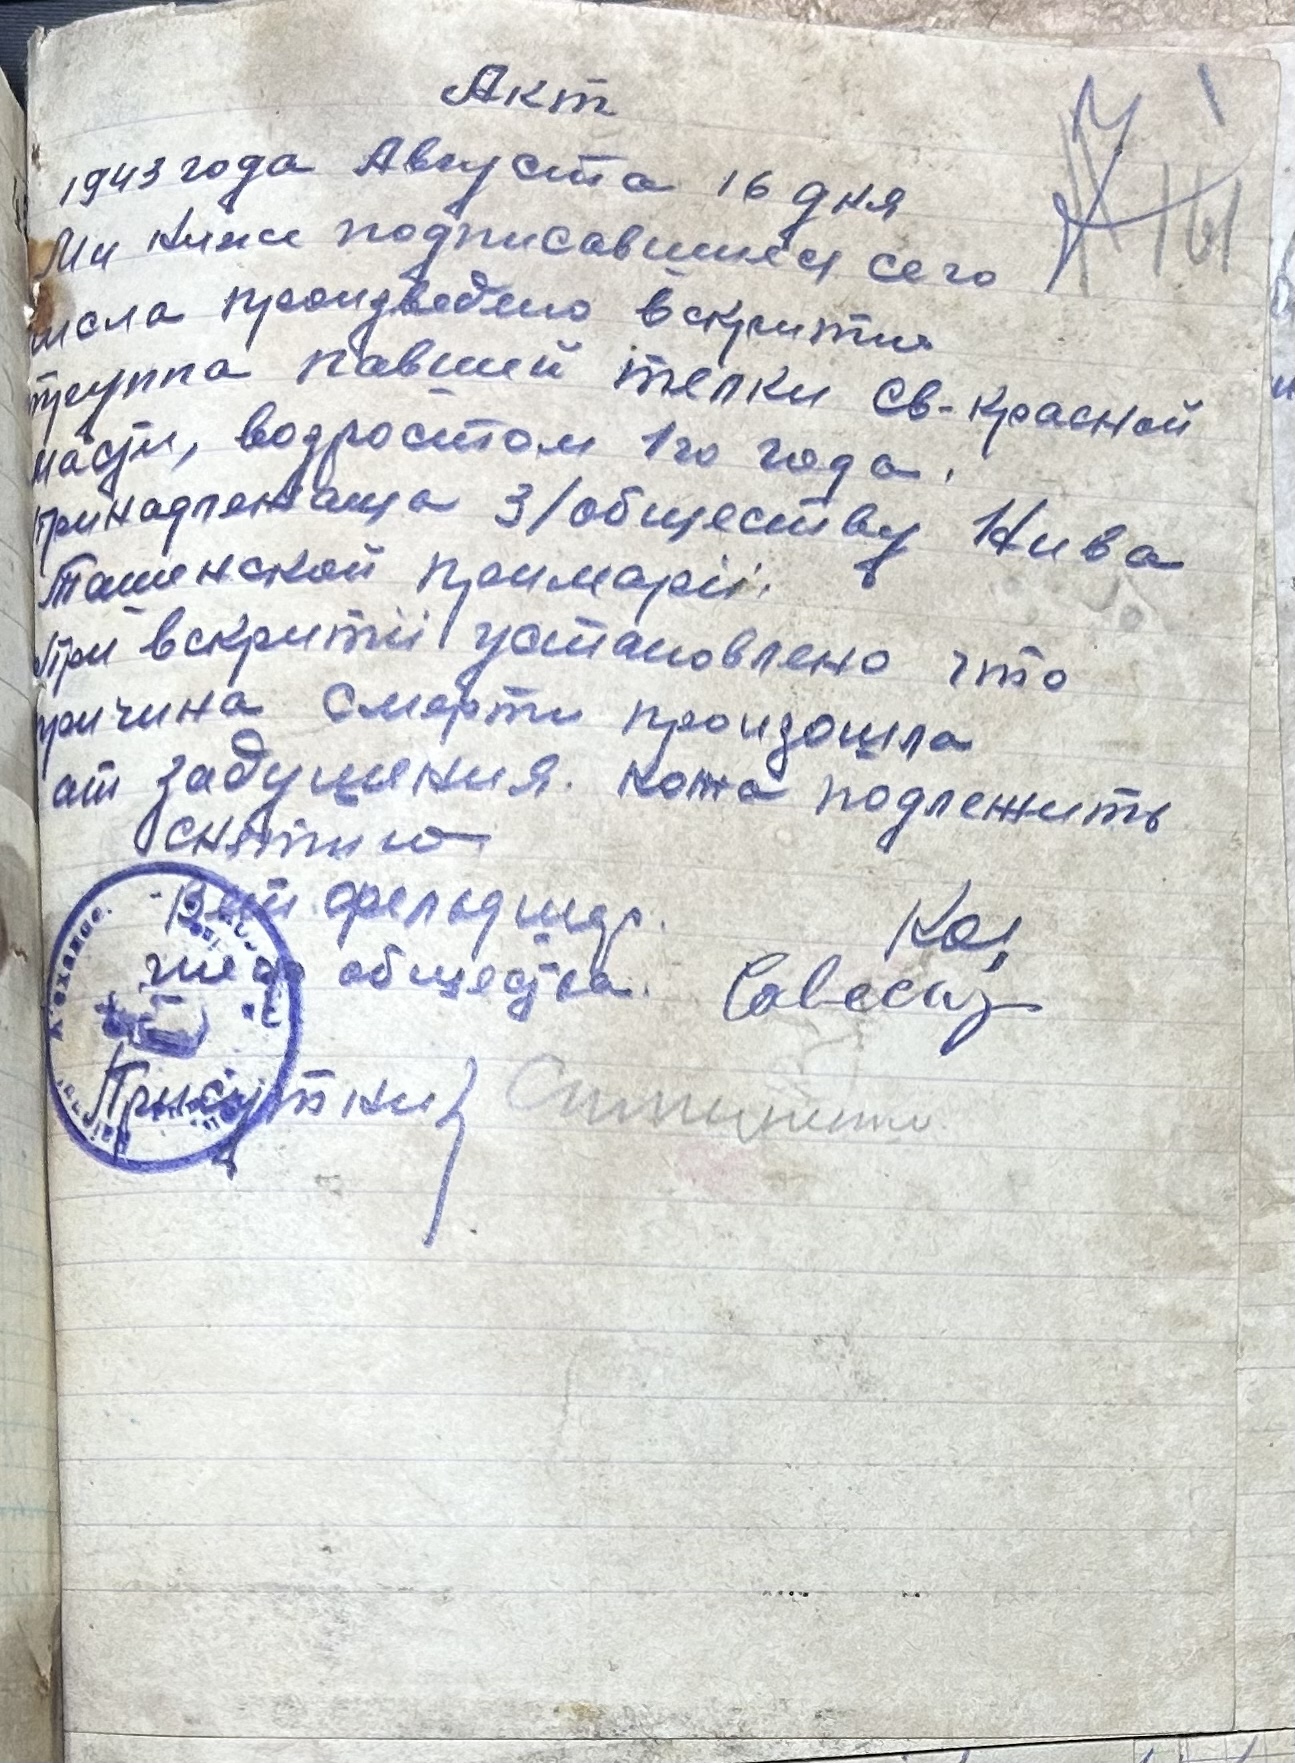 Акт
1943 года Августа 16 дня
Ми ниже подписавшиеся сего
числа произведено вскритие
труппа павшей телки св-красной
масти, возростом 1го года.
принадлежаща З/обществу Нива
Ташенской примаріі.
При вскритіі установлено что
причина смерти произошла
от задушения. кожа подлежить
снятию
Вет. фельдшер.
общества.
Присутни